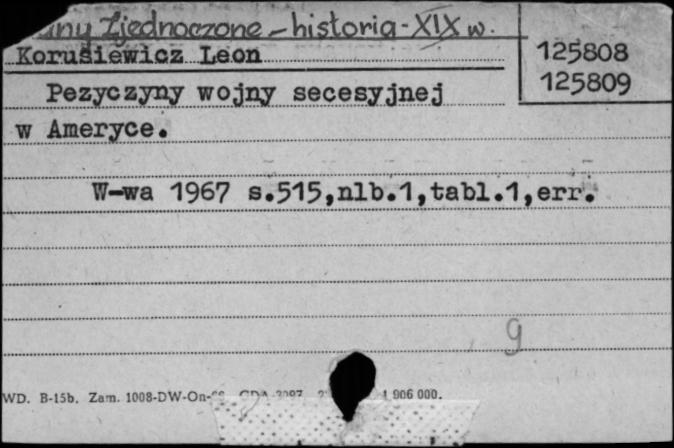 Zjednoczone - historia - XIX w.
Korusiewicz Leon
125808
125809
Pezyczyny wojny secesyjnej
w Ameryce.
W-wa 1967 s.515,nlb.1,tabl.1,err.
9
WD. B-15b. Zam. 1008-DW-On- 1 906 000.